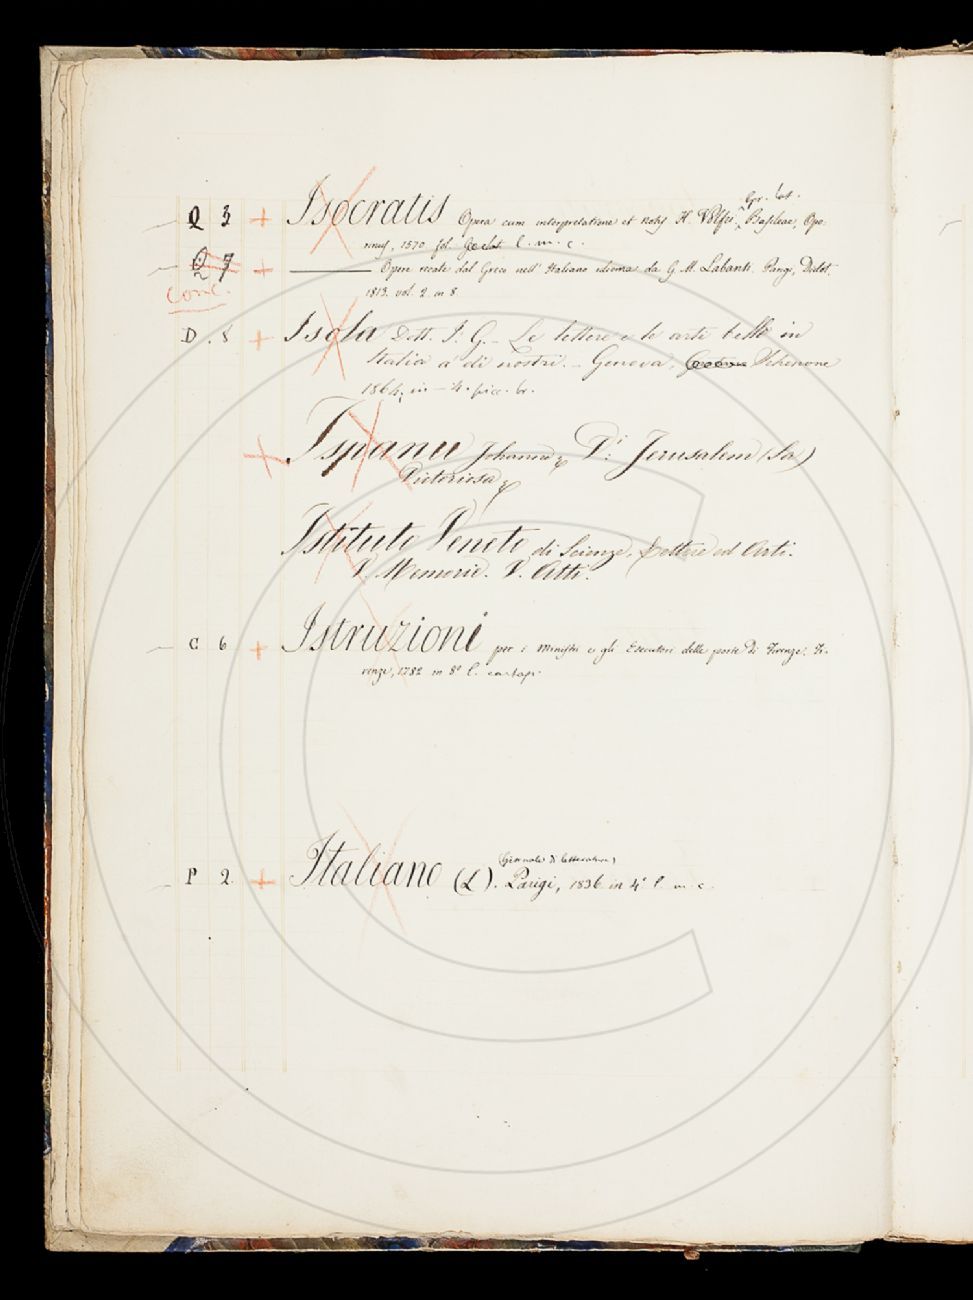 gr. lat.
Q 3 + Isocratis Opera cum interpretatione et notis H. Volfii, Basileae, Opo-
rinus, 1570 fol. l. m. c.
Q 7 + ——— Opere recate dal Greco nell' Italiano idioma da G. M. Labanti. Parigi, Didot.
conc. 1813. vol. 2. in 8.
D. 8 + Isola Dott. I. G. - Le lettere e le arti belle in
Italia a' dì nostri. - Genova, Schenone
1864, in - 4. picc. br.
+ Ispanu Johannes D.i Jerusalem (La)
Victoriosa
Istituto Veneto di Scienze, Lettere ed Arti.
V. Memorie. V. Atti.
C 6 + Istruzioni per i Ministri e gli Esecutori delle porte di Firenze. Fi-
renze, 1782 in 8º l. cartap.
(Giornale di letteratura)
P 2 + Italiano (L'). Parigi, 1836 in 4º l. m. c.